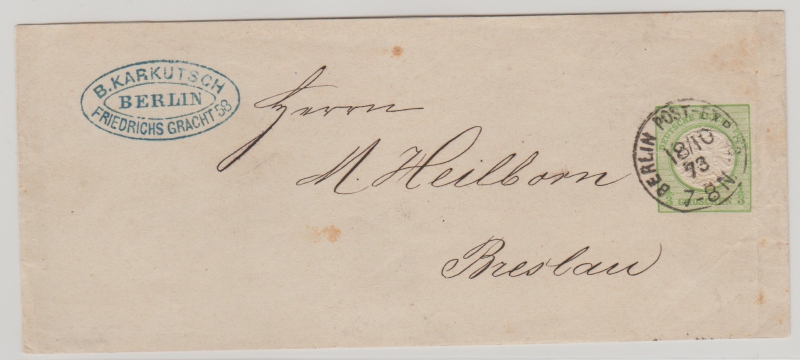 B. KARKUTSCH
BERLIN
FRIEDRICHS GRACHT 58
Herrn
M. Heilborn
Breslau
BERLIN POST-EXP
18/10
73
7-8 N.